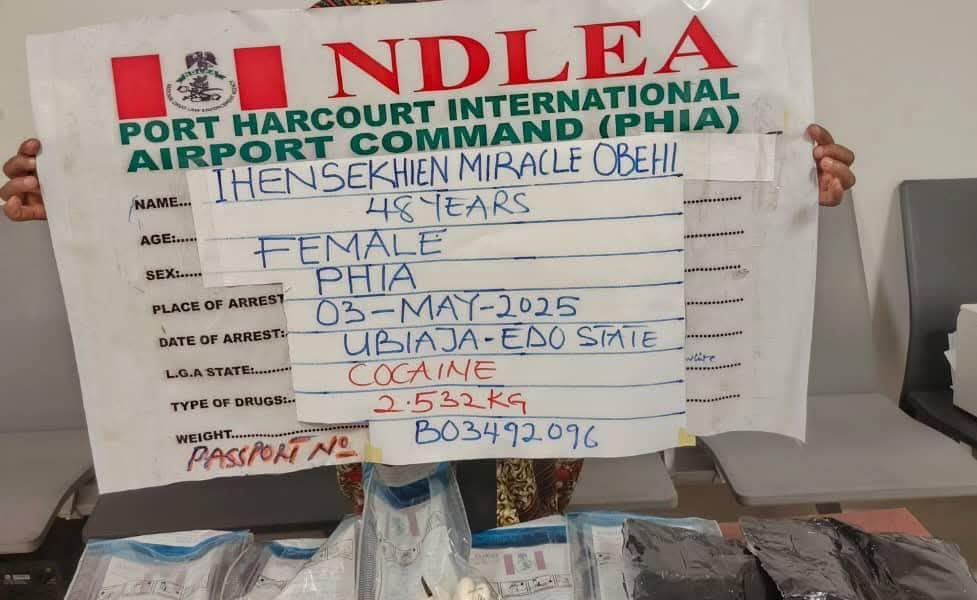 NDLEA
PORT HARCOURT INTERNATIONAL
AIRPORT COMMAND (PHIA)
NAME... IHENSEKHIEN MIRACLE OBEHI
AGE:..... 48 YEARS
SEX:..... FEMALE
PLACE OF ARREST PHIA
DATE OF ARREST: 03-MAY-2025
L.G.A STATE:...... UBIAJA-EDO STATE
TYPE OF DRUGS:.. COCAINE
WEIGHT.................. 2.532KG
PASSPORT NO B03492096